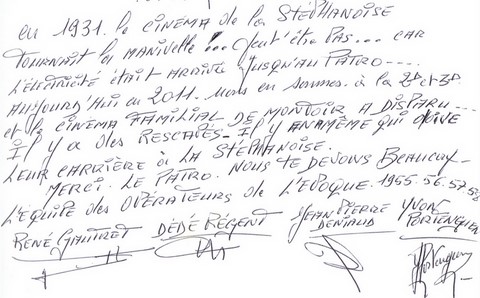 en 1931. le CINEMA de la STÉPHANOISE
TOURNAIT la MANIVELLE... peut'être pas... CAR
L'ELECTRICITÉ ÉTAIT ARRIVÉ JUSQU'AU PATRO----
AUJOURD'HUI en 2011. nous en sommes. à la 2D et 3D.
et le CINEMA FAMILIAL DE MONTOIR A DISPARU----
IL y A des RESCAPÉS - IL y EN A MÊME QUI
LEUR CARRIÈRE à LA STEPHANOISE.
MERCI. LE PATRO. NOUS TE DEVONS BEAUCOUP-
L'EQUIPE des OPÉRATEURS de L'EPOQUE. 1955.56.57.58
RENÉ GAUTRET DÉDÉ REGENT JEAN PIERRE YVON
DENIAUD